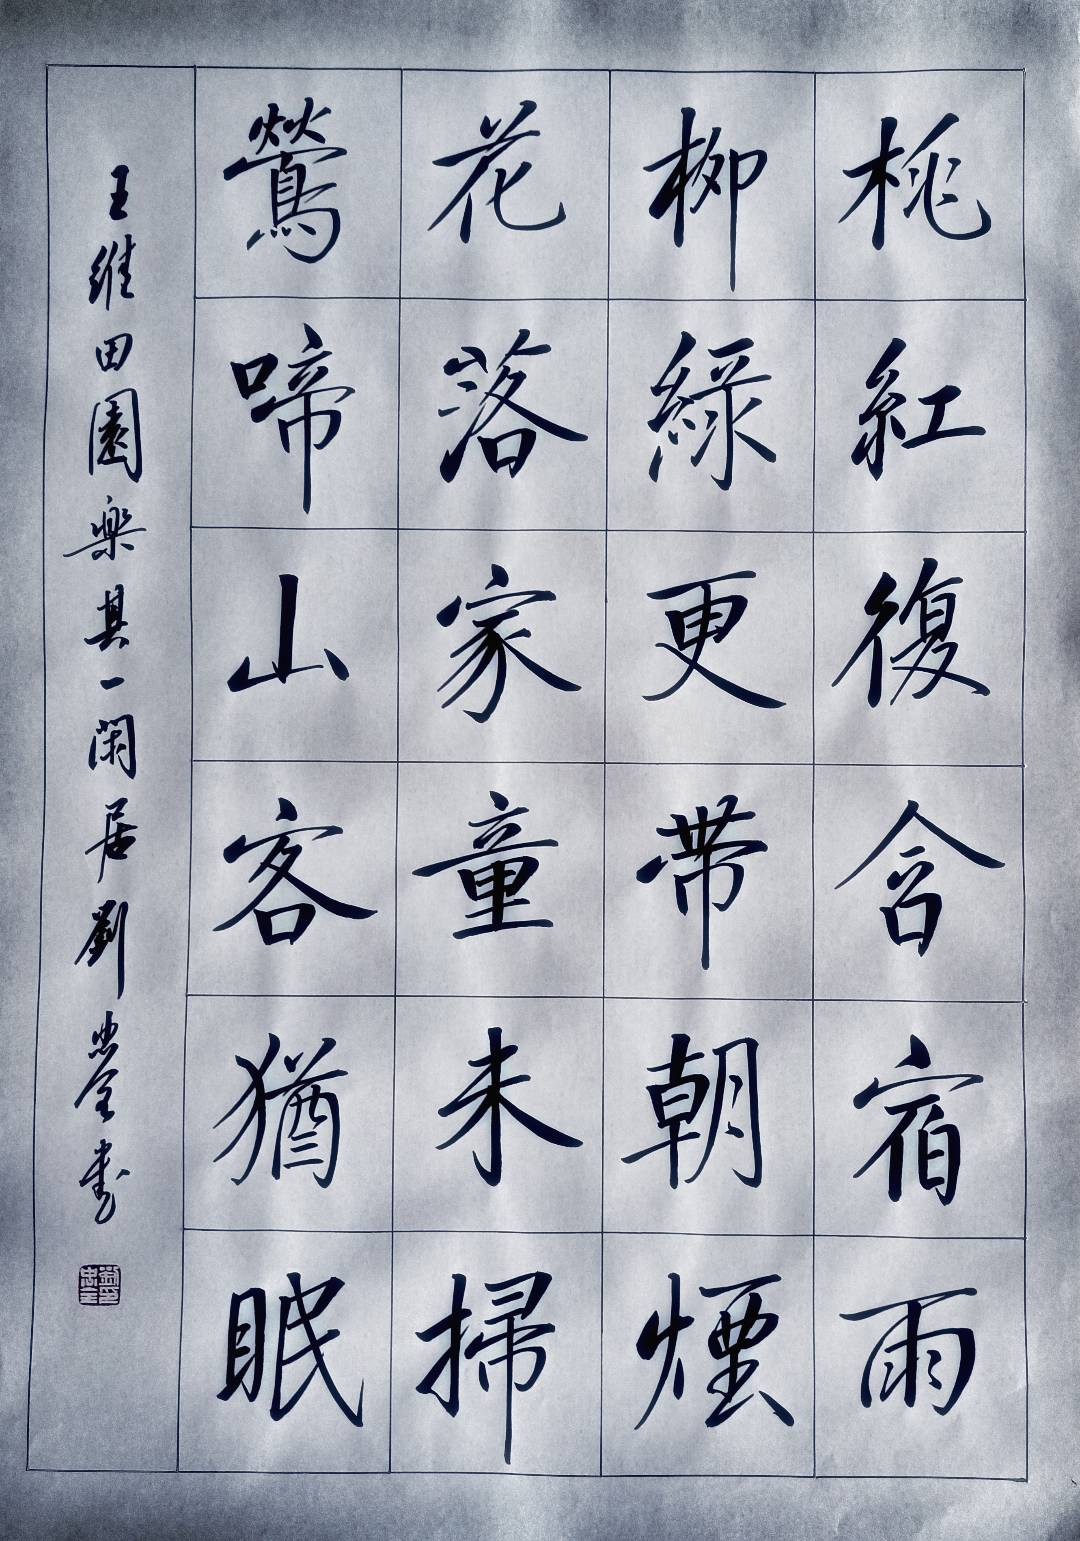 桃紅復含宿雨
柳綠更帶朝煙
花落家童未掃
鶯啼山客猶眠
王維田園樂其一閑居劉忠全書